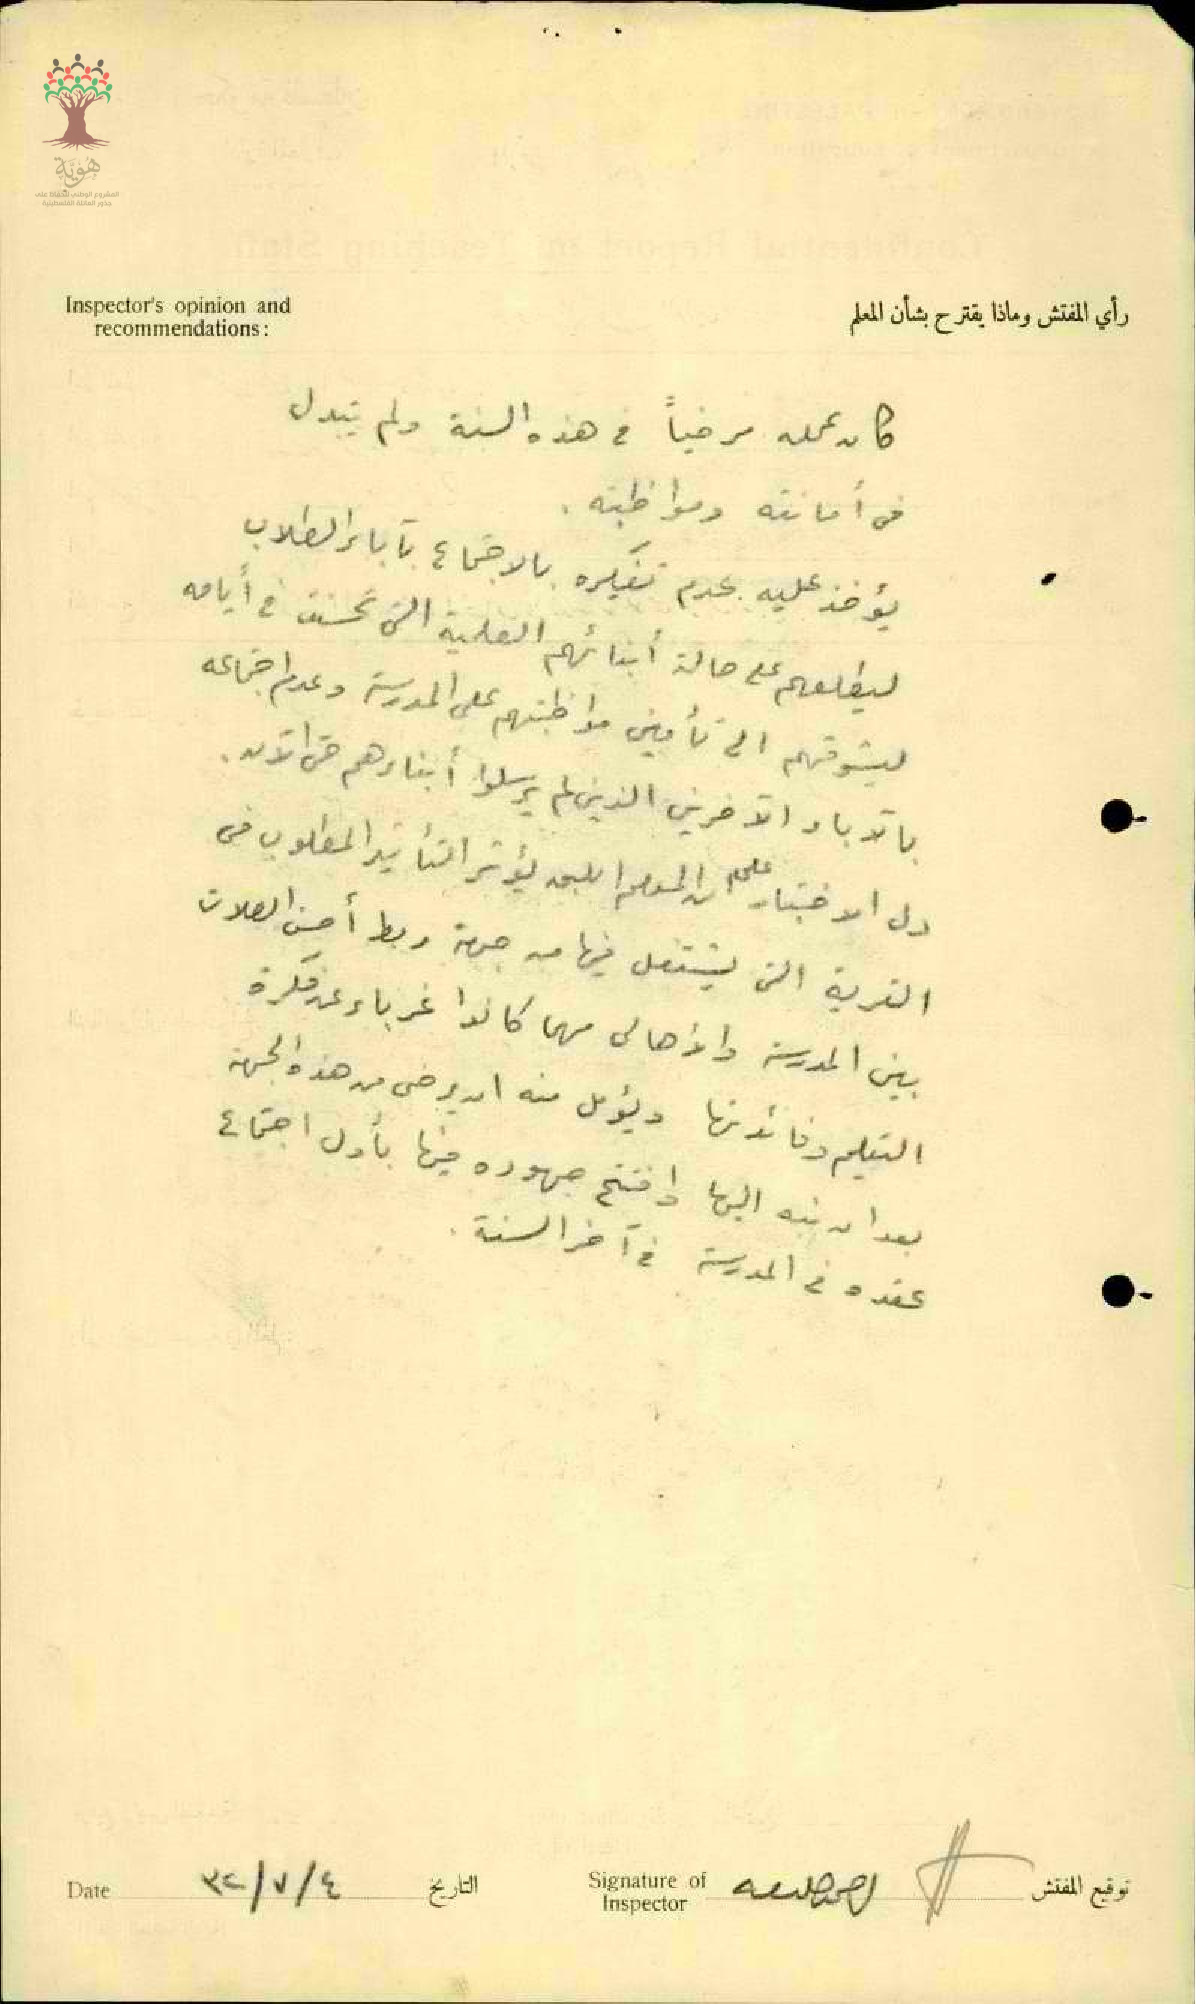 هُوِيَّة
المشروع الوطني للحفاظ على
جذور العائلة الفلسطينية
Inspector's opinion and
recommendations:
رأي المفتش وماذا يقترح بشأن المعلم
كان عمله مرضياً في هذه السنة ولم يتبدل
في أمانته ومواظبته .
يؤخذ عليه عدم تفكيره بالاجتماع بآباء الطلاب
ليطلعهم على حالة أبنائهم العلمية التي تحسنت في أيامه
ليشوقهم الى تأمين مواظبتهم على المدرسة وعدم اجتماعه
بالآباء الآخرين الذين لم يرسلوا أبناءهم حتى الآن .
دل الاختبار على ان المعلم يؤثر التأثير المطلوب في
القرية التي يشتغل فيها من جهة ربط أحسن الصلات
بين المدرسة والأهالي مهما كانوا غرباء عن فكرة
التعليم وفائدتها ويؤمل منه ان يرضى من هذه الجهة
بعد ان نبه اليها وافتتح جهوده فيها بأول اجتماع
عقده في المدرسة في آخر السنة .
Date ٣٢/٧/٤ التاريخ
Signature of
Inspector
توقيع المفتش